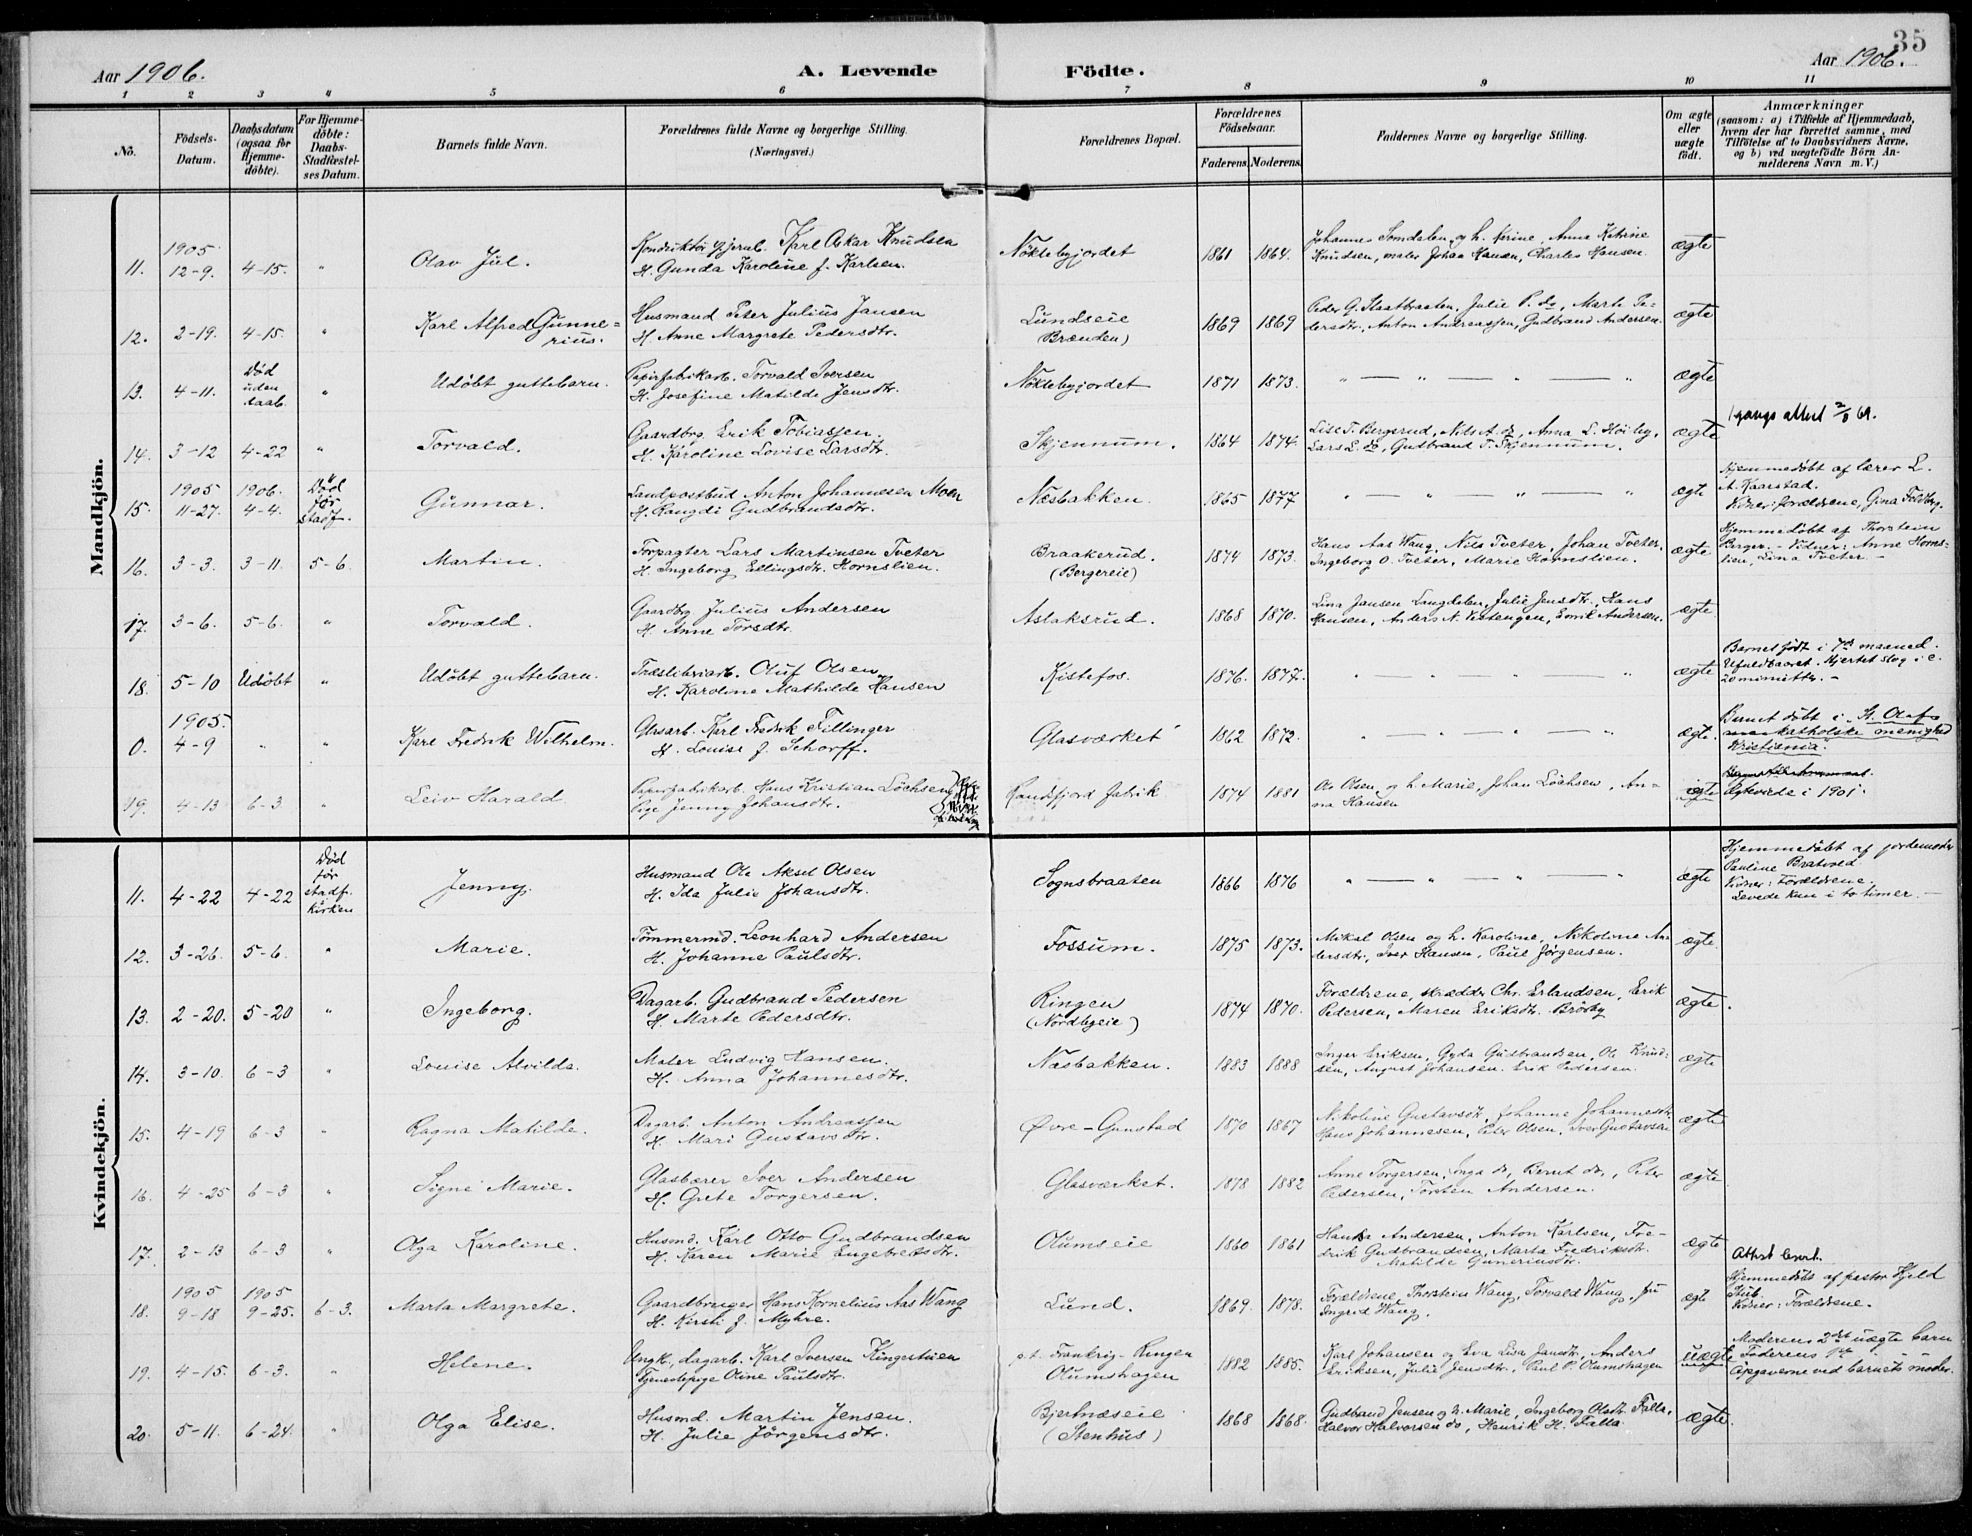 35
Aar 1906. A. Levende Födte. Aar 1906.
1 2 3 4 5 6 7 8 9 10 11
No.
Födsels-Datum.
Daabsdatum (ogsaa for Hjemme-döbte).
For Hjemme-döbte: Daabs-Stadfæstel-ses Datum.
Barnets fulde Navn.
Forældrenes fulde Navne og borgerlige Stilling.
(Næringsvei.)
Forældrenes Bopæl.
Forældrenes Födselsaar.
Faderens. Moderens.
Faddernes Navne og borgerlige Stilling.
Om ægte eller uægte födt.
Anmærkninger
(saasom: a) i Tilfælde af Hjemmedaab,
hvem der har forrettet samme, med
Tilföielse af to Daabsvidners Navne,
og b) ved uægtefödte Börn An-
melderens Navn m. V.)
Mandkjön.
11. 1905 12-9. 4-15. " Olav Jul. Konduktör Karl Oskar Knudsen
H. Gunda Karoline f. Karlsen. Nöklebyjordet 1861 1864. Johannes Somdalen og h. Karine, Anna Katrine
Knudsen, maler Johan Hansen, Charles Hansen. ægte
12. 2-19. 4-15. " Karl Alfred Gunne-
rius. Husmand Peter Julius Jansen
H. Anne Margrete Pedersdtr. Lundseie
(Brænden) 1869 1869 Peder G. Slaatbraaten, Julie P. do, Marte Pe-
dersdtr., Anton Andreassen, Gudbrand Andersen. ægte
13. 4-11. Död uden daab. " Udöbt guttebarn. Papirfabrikarb. Torvald Iversen
H. Josefine Matilde Jensdtr. Nöklebyjordet 1871 1873. " — " — " — " ægte
14. 3-12 4-22 " Torvald. Gaardbrg. Erik Tobiassen.
H. Karoline Lovise Larsdtr. Skjennum. 1864 1874. Lise T. Bergerud, Nils A. do, Anna L. Höiby,
Lars L. do, Gudbrand T. Skjennum. ægte
15. 1905 11-27. 1906. 4-4. Död för stadf. Gunnar. Landpostbud Anton Johannesen Moen
H. Rangdi Gudbrandsdtr. Næsbakken. 1865 1877 " — " " — " ægte Hjemmedöbt af lærer L.
A. Kaarstad.
Vidner: forældrene, Gina Foldberg.
16. 3-3. 3-11. 5-6. Martin. Forpagter Lars Martinsen Tveter
H. Ingeborg Ellingsdtr. Hornslien. Braakerud.
(Bergereie) 1874 1873. Hans Aas Wang, Nils Tveter, Johan Tveter,
Ingeborg O. Tveter, Marie Hornslien. ægte Hjemmedöbt af Thorstein
Berger. - Vidner: Anne Horns-
lien, Lina Tveter. -
17. 3-6. 5-6. " Torvald. Gaardbrg Julius Andersen
H. Anne Torsdtr. Aslaksrud. 1868 1870. Lina Jansen Langdalen, Julie Jensdtr., Hans
Hansen, Anders N. Vestengen, Emil Andersen. ægte
18. 5-10 Udöbt " Udöbt guttebarn. Træsliberiarb. Oluf Olsen
H. Karoline Mathilde Hansen Kistefos. 1876. 1877. " — " — " — " ægte Barnet födt i 7de maaned.
Ufuldbaaret. Hjertet slog i c.
20 minutter. -
0. 1905. 4-9 " " Karl Fredrik Wilhelm. Glasarb. Karl Fredrik Fillinger
H. Louise f. Schorff. Glasværket 1862 1872. " — " — " — " ægte. Barnet döbt i "St. Olafs
katholske menighed
Kristiania.
19. 4-13 6-3 " Leiv Harald. Papirfabrikarb. Hans Kristian Löchsen
Pige Jenny Johansdtr. Randsfjord fabrik 1874 1881 Ole Olsen og h. Marie, Johan Löchsen, An-
na Hansen ægte Ægteviede i 1901.
Kvindekjön.
11. 4-22 4-22 Död för stadf. kirken Jenny. Husmand Ole Aksel Olsen
H. Ida Julie Johansdtr. Sognsbraaten 1866 1876 " — " — " — " ægte Hjemmedöbt af jordemoder
Pauline Bratvold.
Vidner: Forældrene.
Levede kun i to timer. -
12. 3-26. 5-6. " Marie. Tömmermd. Leonhard Andersen
H. Johanne Paulsdtr. Fossum. 1875 1873. Mikal Olsen og h. Karoline, Nikoline An-
dersdtr., Iver Hansen, Paul Jörgensen. ægte
13. 2-20. 5-20 " Ingeborg. Dagarb. Gudbrand Pedersen
H. Marte Pedersdtr. Ringen
(Nordbyeie) 1874 1870. Forældrene, skrædder Chr. Erlandsen, Erik
Pedersen, Maren Eriksdtr. Brörby ægte.
14. 3-10. 6-3 " Louise Alvilde. Maler Ludvig Hansen.
H. Anna Johannesdtr. Næsbakken. 1883 1888 Inger Eriksen, Gyda Gudbrandsen, Ole Knud-
sen, August Johansen. Erik Pedersen. ægte
15. 4-19 6-3 " Ragna Matilde. Dagarb. Anton Andreassen
H. Mari Gustavsdtr. Övre-Gunstad 1870 1867 Nikoline Gustavsdtr, Johanne Johannesdtr.
Hans Johannesen, Peter Olsen, Iver Gustavsen ægte
16. 4-25 6-3 " Signe Marie. Glasbærer Iver Andersen
H. Grete Torgersen. Glasværket. 1878 1882 Anne Torgersen, Inga do, Bernt do, Peter
Pedersen, Torsten Andersen. ægte
17. 2-13 6-3 " Olga Karoline. Husmd. Karl Otto Gudbrandsen
H. Karen Marie Engebretsdtr. Olumseie 1860 1861 Hanna Andersen, Anton Karlsen, Fre-
drik Gudbrandsen, Marta Fredriksdtr.
Matilde Guneriusdtr. ægte
18. 1905 9-18 1905 9-25. 6-3. Marta Margrete. Gaardbruger Hans Kornelius Aas Wang
H. Kirsti f. Myhre. Lund. 1869. 1878. Forældrene, Thorstein Wang, Torvald Wang,
Ingrid Wang. ægte Attest levert.
Hjemmedöbt af pastor Kjeld
Stub.
Vidner: Forældrene.
19. 4-15. 6-3. " Helene. Ungk., dagarb. Karl Iversen Ringestuen
Tjenestepige Oline Paulsdtr. p.t. Frankrig-Ringen
Olumshagen 1882 1885. Karl Johansen og Eva Lisa Jansdtr, Anders
Eriksen, Julie Jensdtr, Paul P. Olumshagen uægte Moderens 2det uægte barn
Faderens 1ste " "
Opgaverne ved barnets moder.
20. 5-11. 6-24. " Olga Elise. Husmd. Martin Jensen.
H. Julie Jörgensdtr. Bjertnæseie
(Stenhus) 1868 1868. Gudbrand Jensen og h. Marie, Ingeborg Olsdtr. Falla,
Halvor Halvorsen do, Henrik H. Falla ægte.